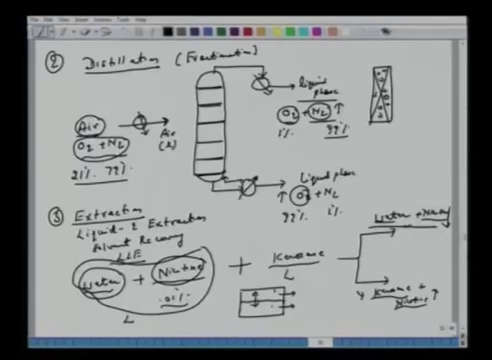 ② Distillation (Fractionation)
Air
O2 + N2
21% 79%
Air
(l)
liquid
phase
O2 + N2 ↑
1% 99%
Liquid phase
↑ O2 + N2
99% 1%
③ Extraction
Liquid-L Extraction
Solvent Recovery
LLE
Water + Nicotine + Kerosene
.01%
L
L
Water + Nicotine
Kerosene +
Nicotine ↑